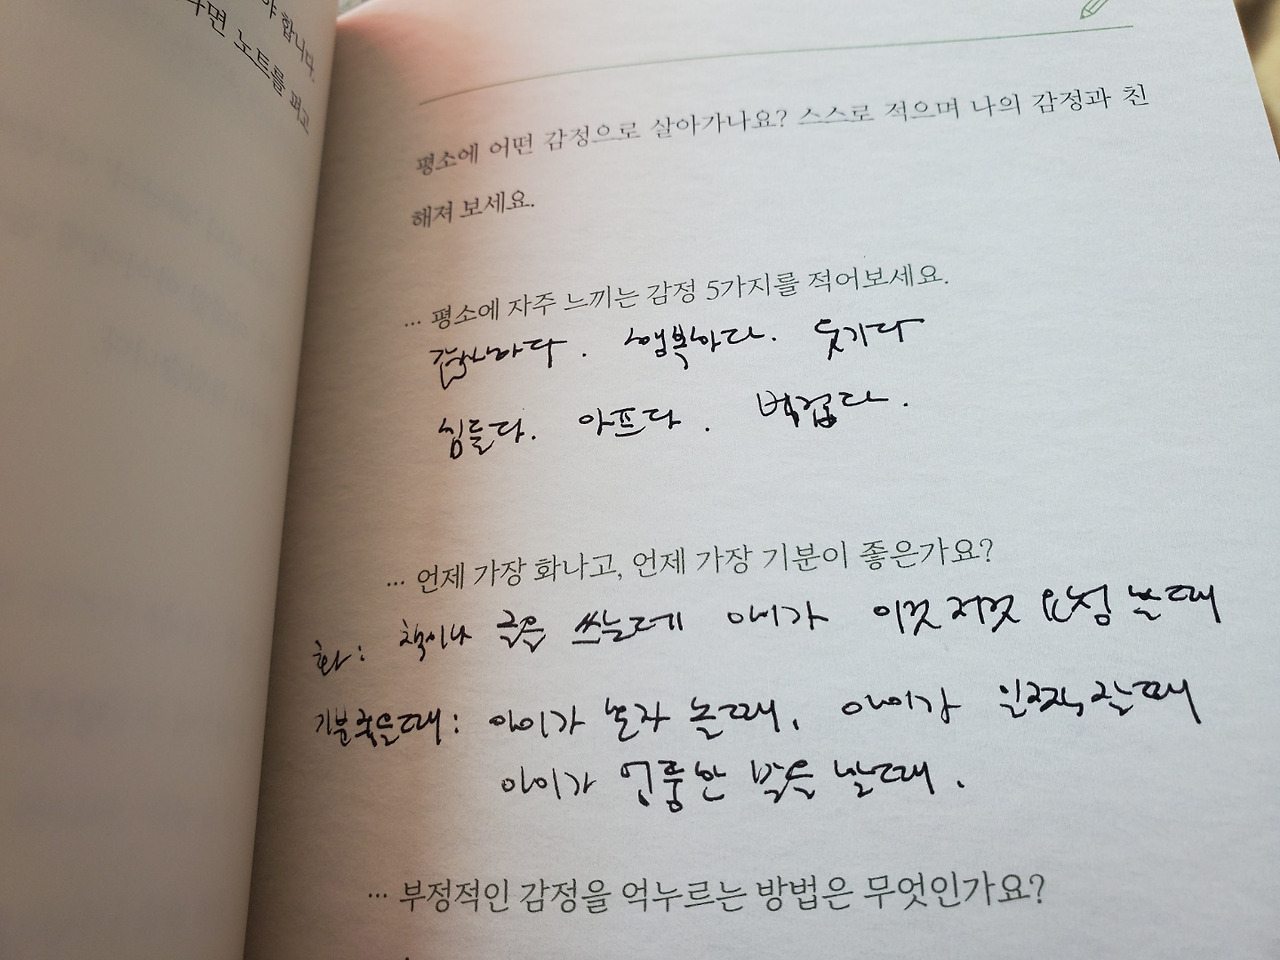 야 합니다.
라면 노트를 펴고
평소에 어떤 감정으로 살아가나요? 스스로 적으며 나의 감정과 친
해져 보세요.
... 평소에 자주 느끼는 감정 5가지를 적어보세요.
행복하다. 웃기다
힘들다. 아프다. 버겁다.
... 언제 가장 화나고, 언제 가장 기분이 좋은가요?
화: 책이나 글을 쓰는데 아이가 이것저것 요청할때
기분좋을때: 아이가 혼자 놀때, 아이가 일찍 잘때
아이가 엉뚱한 말을 할때.
... 부정적인 감정을 억누르는 방법은 무엇인가요?